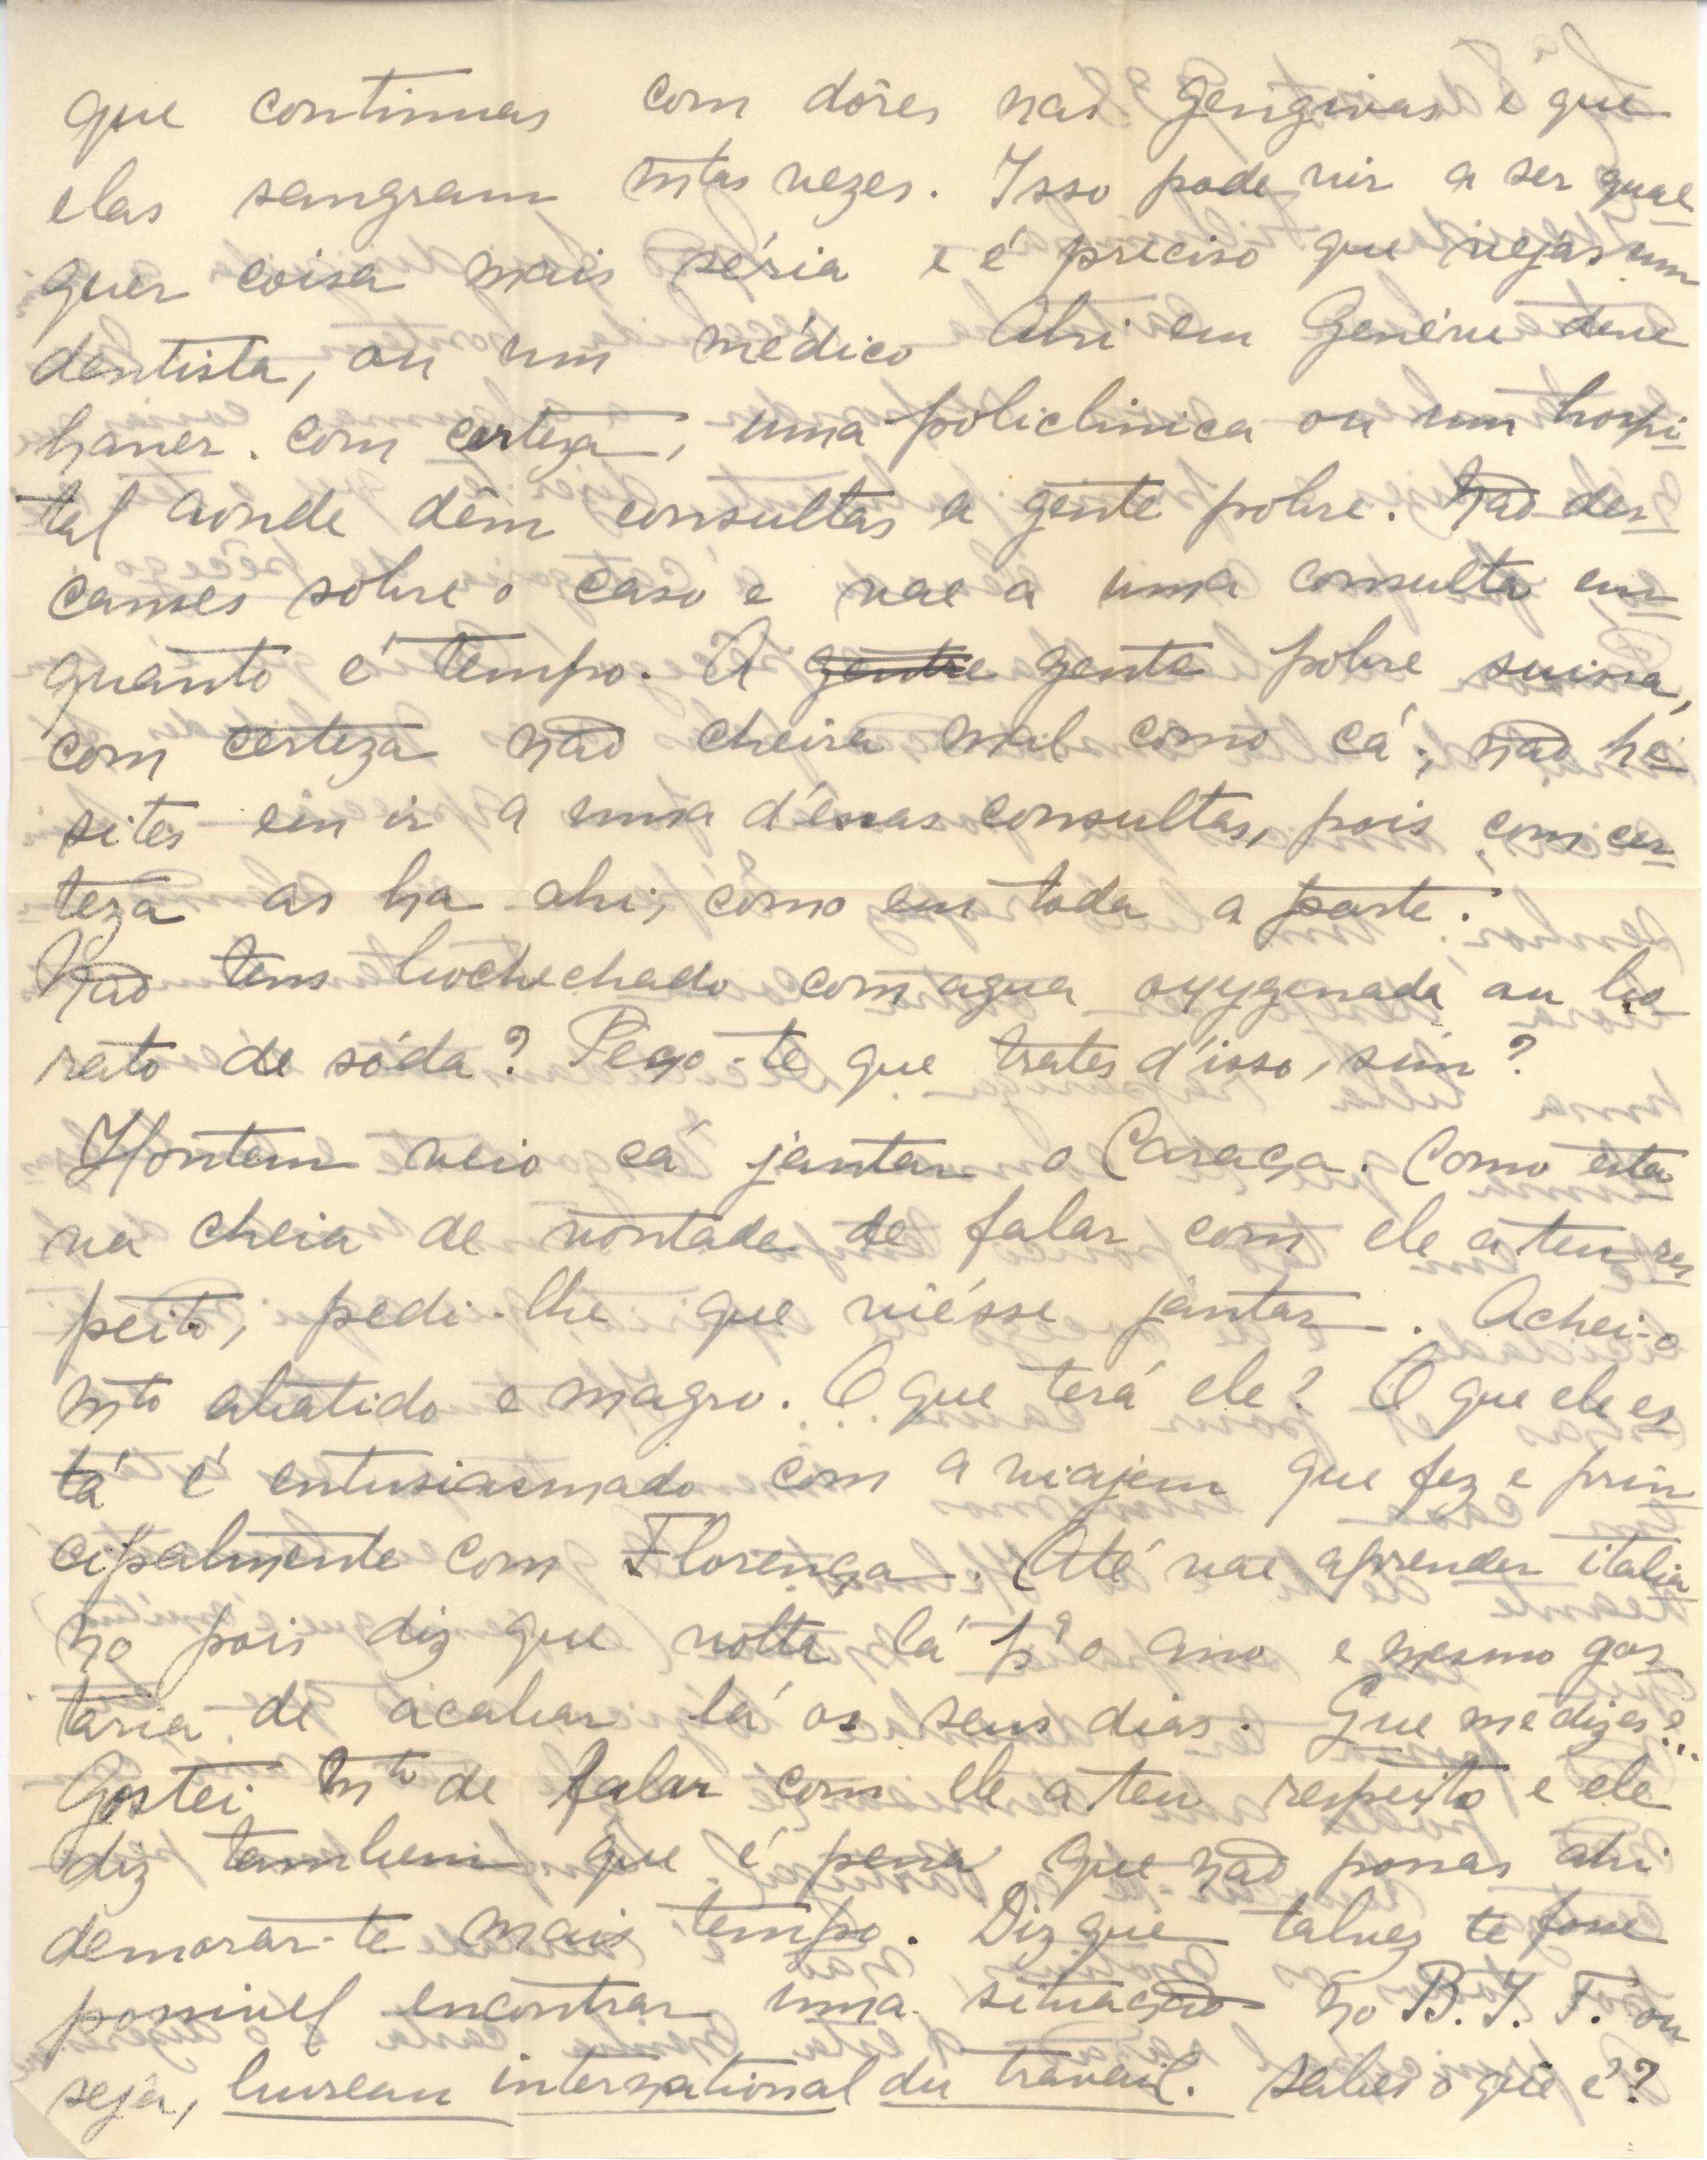 que continuas com dôres nas gengivas e que
elas sangram mtas vezes. Isso pode vir a ser qual-
quer coisa mais séria e é preciso que vejas um
dentista, ou um médico Ahi em Genéve deve
haver. com certeza, uma policlinica ou um hospi-
tal aonde dêm consultas a gente pobre. Não des-
canses sobre o caso e vae a uma consulta em-
quanto é tempo. A gentre gente pobre suissa,
com certeza não cheira mal como cá; não hé-
sites em ir a uma d'essas consultas, pois com cer-
teza as ha ahi, como em toda a parte.
Não tens bochechado com agua oxygenada ou bo-
rato de sóda? Peço-te que trates d'isso, sim?
Hontem veio cá jantar o Caraça. Como esta-
va cheia de vontade de falar com ele a teu res-
peito, pedi-lhe que viésse jantar. Achei-o
mto abatido e magro. O que terá ele? O que ele es-
tá é entusiasmado com a viajem que fez e prin-
cipalmente com Florença. Até vae aprender italia-
no pois diz que volta lá pª o ano e mesmo gos-
taria de acabar lá os seus dias. Que me dizes?...
Gostei mto de falar com ele a teu respeito e ele
diz tambem que é pena que não possas ahi
demorar-te mais tempo. Diz que talvez te fosse
possivel encontrar uma situação no B. I. T. ou
seja, bureau international du travail. Sabes o que é?